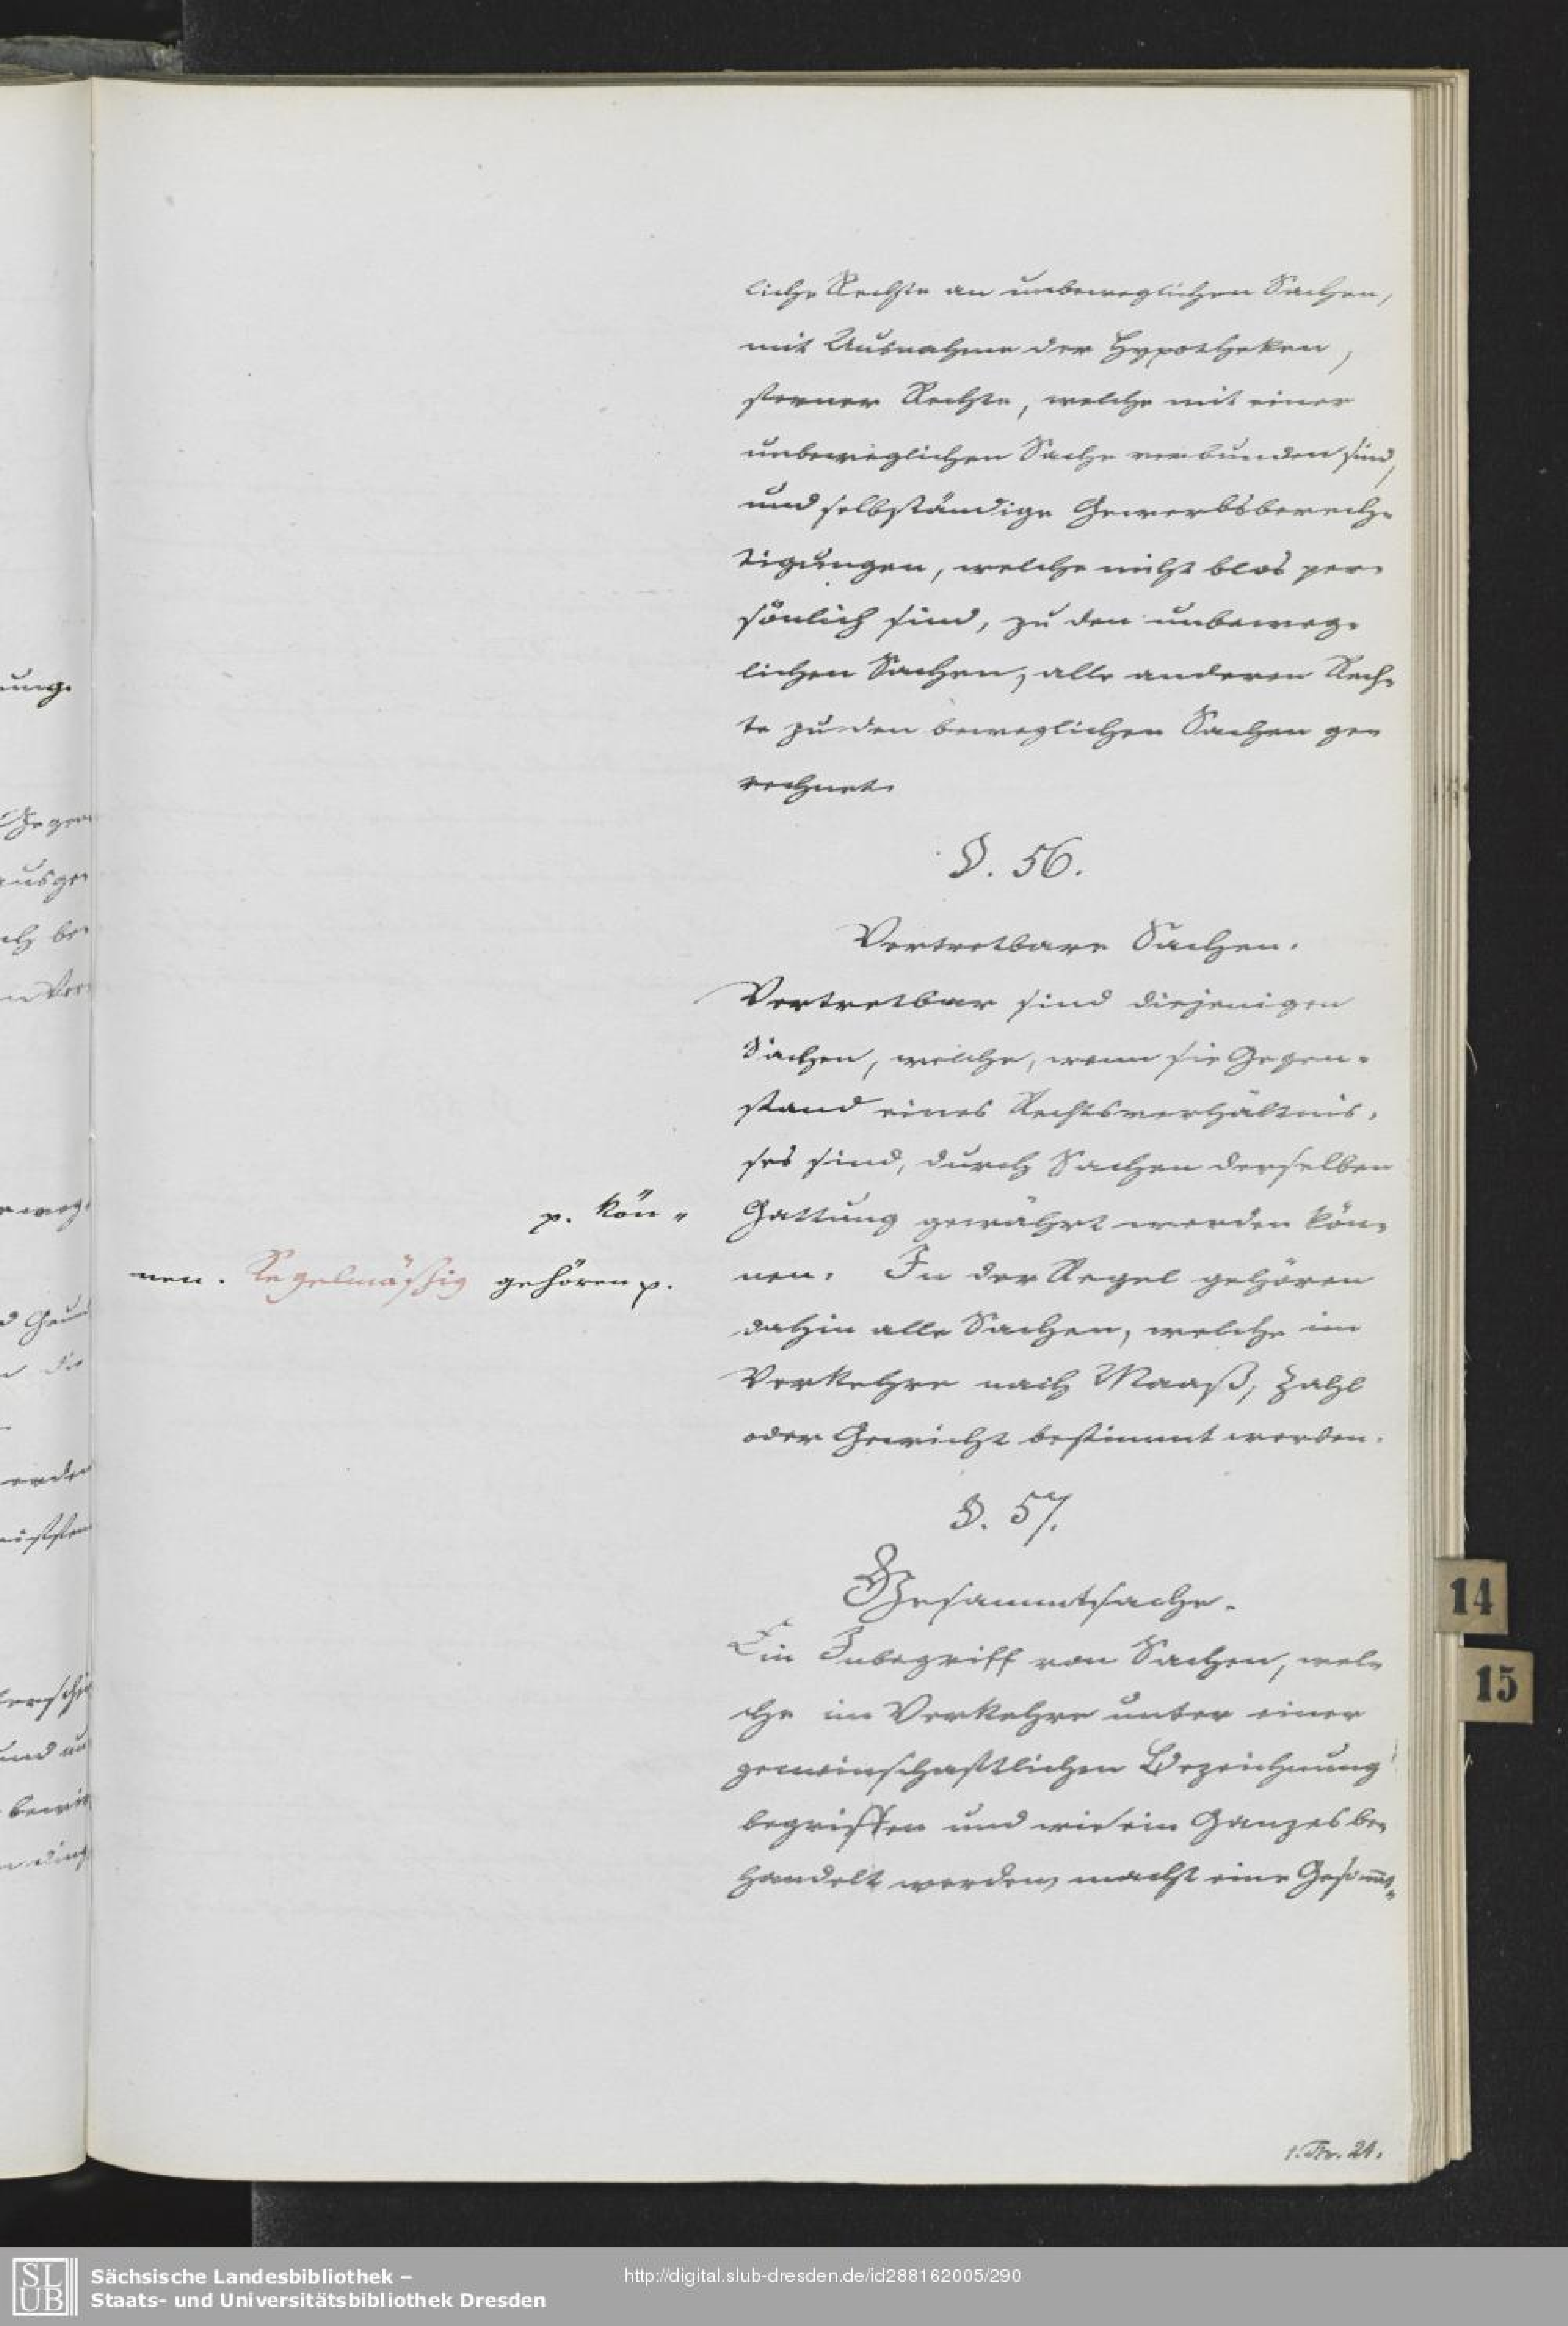 liche Rechte an unbeweglichen Sachen,
mit Ausnahme der Hypotheken,
ferner Rechte, welche mit einer
unbeweglichen Sache verbunden sind,
und selbständige Gewerbsberech-
tigungen, welche nicht blos per-
sönlich sind, zu den unbeweg-
lichen Sachen, alle anderen Rech-
te zu den beweglichen Sachen ge-
rechnet.
§. 56.
Vertretbare Sachen.
Vertretbar sind diejenigen
Sachen, welche, wenn sie Gegen-
stand eines Rechtsverhältnis-
ses sind, durch Sachen derselben
Gattung gewährt werden kön-
nen. In der Regel gehören
dahin alle Sachen, welche im
Verkehre nach Maaß, Zahl
oder Gewicht bestimmt werden.
p. kön-
nen. Regelmäßig gehören p.
§. 57.
Gesammtsache.
Ein Inbegriff von Sachen, wel-
che im Verkehre unter einer
gemeinschaftlichen Bezeichnung
begriffen und wie ein Ganzes be-
handelt werden, macht eine Gesammt-
14
15
SLUB
Sächsische Landesbibliothek –
Staats- und Universitätsbibliothek Dresden
http://digital.slub-dresden.de/id288162005/290